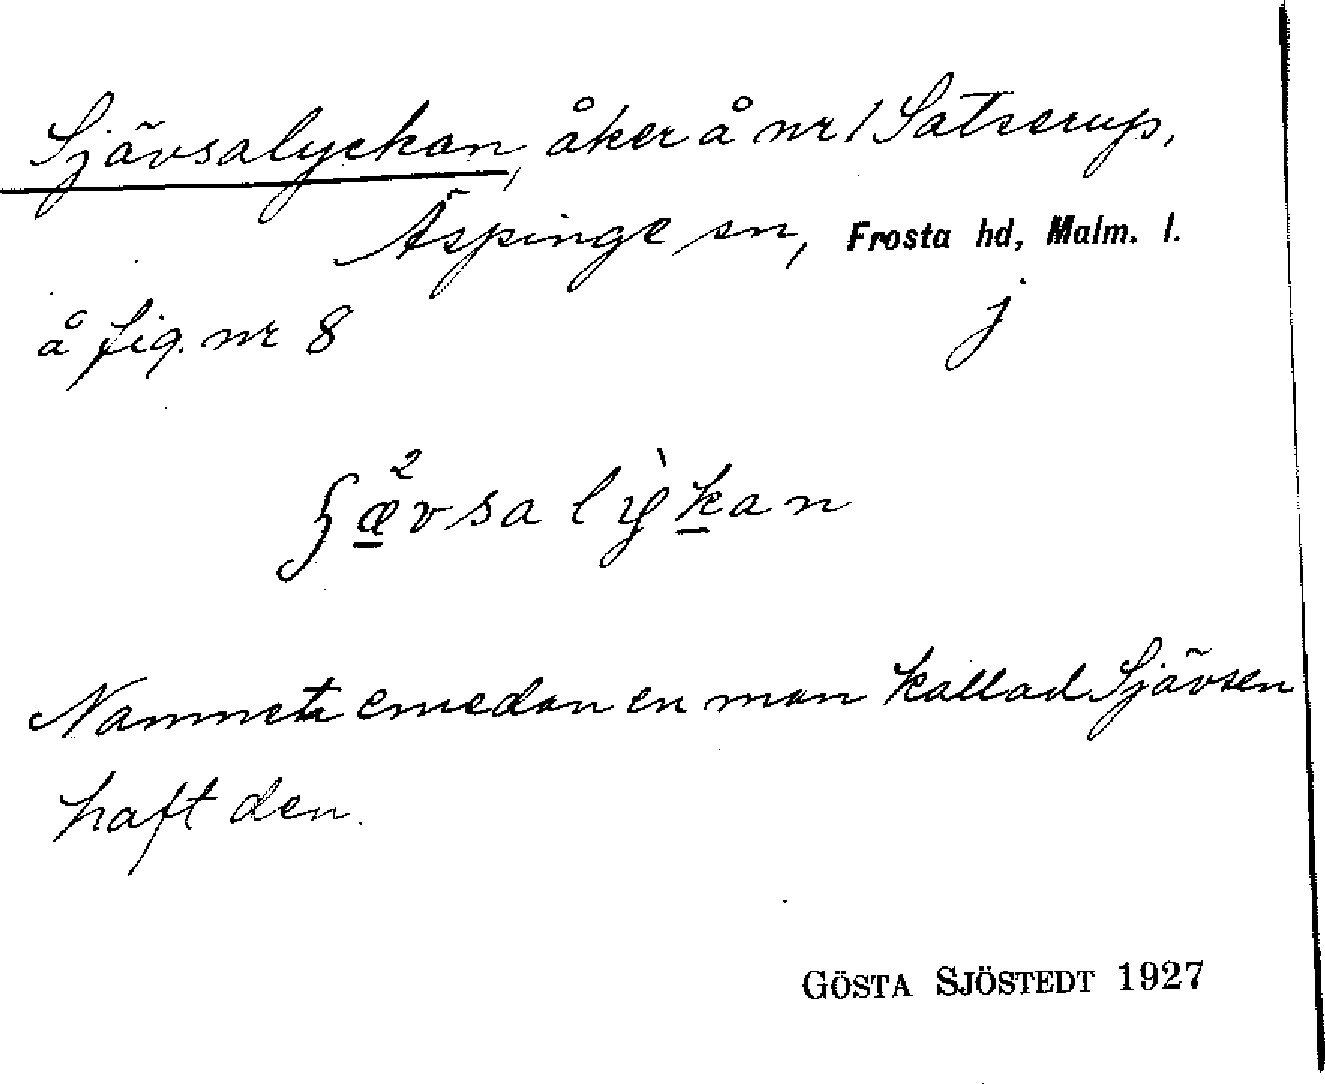 Sjävsalyckan, åker å nr 1 Satserup,
Äspinge sn, Frosta hd, Malm. l.
å fig. nr 8 j
ʃævsa lỳkan
Namnet emedan en man kallad Sjävsen
haft den.
GÖSTA SJÖSTEDT 1927